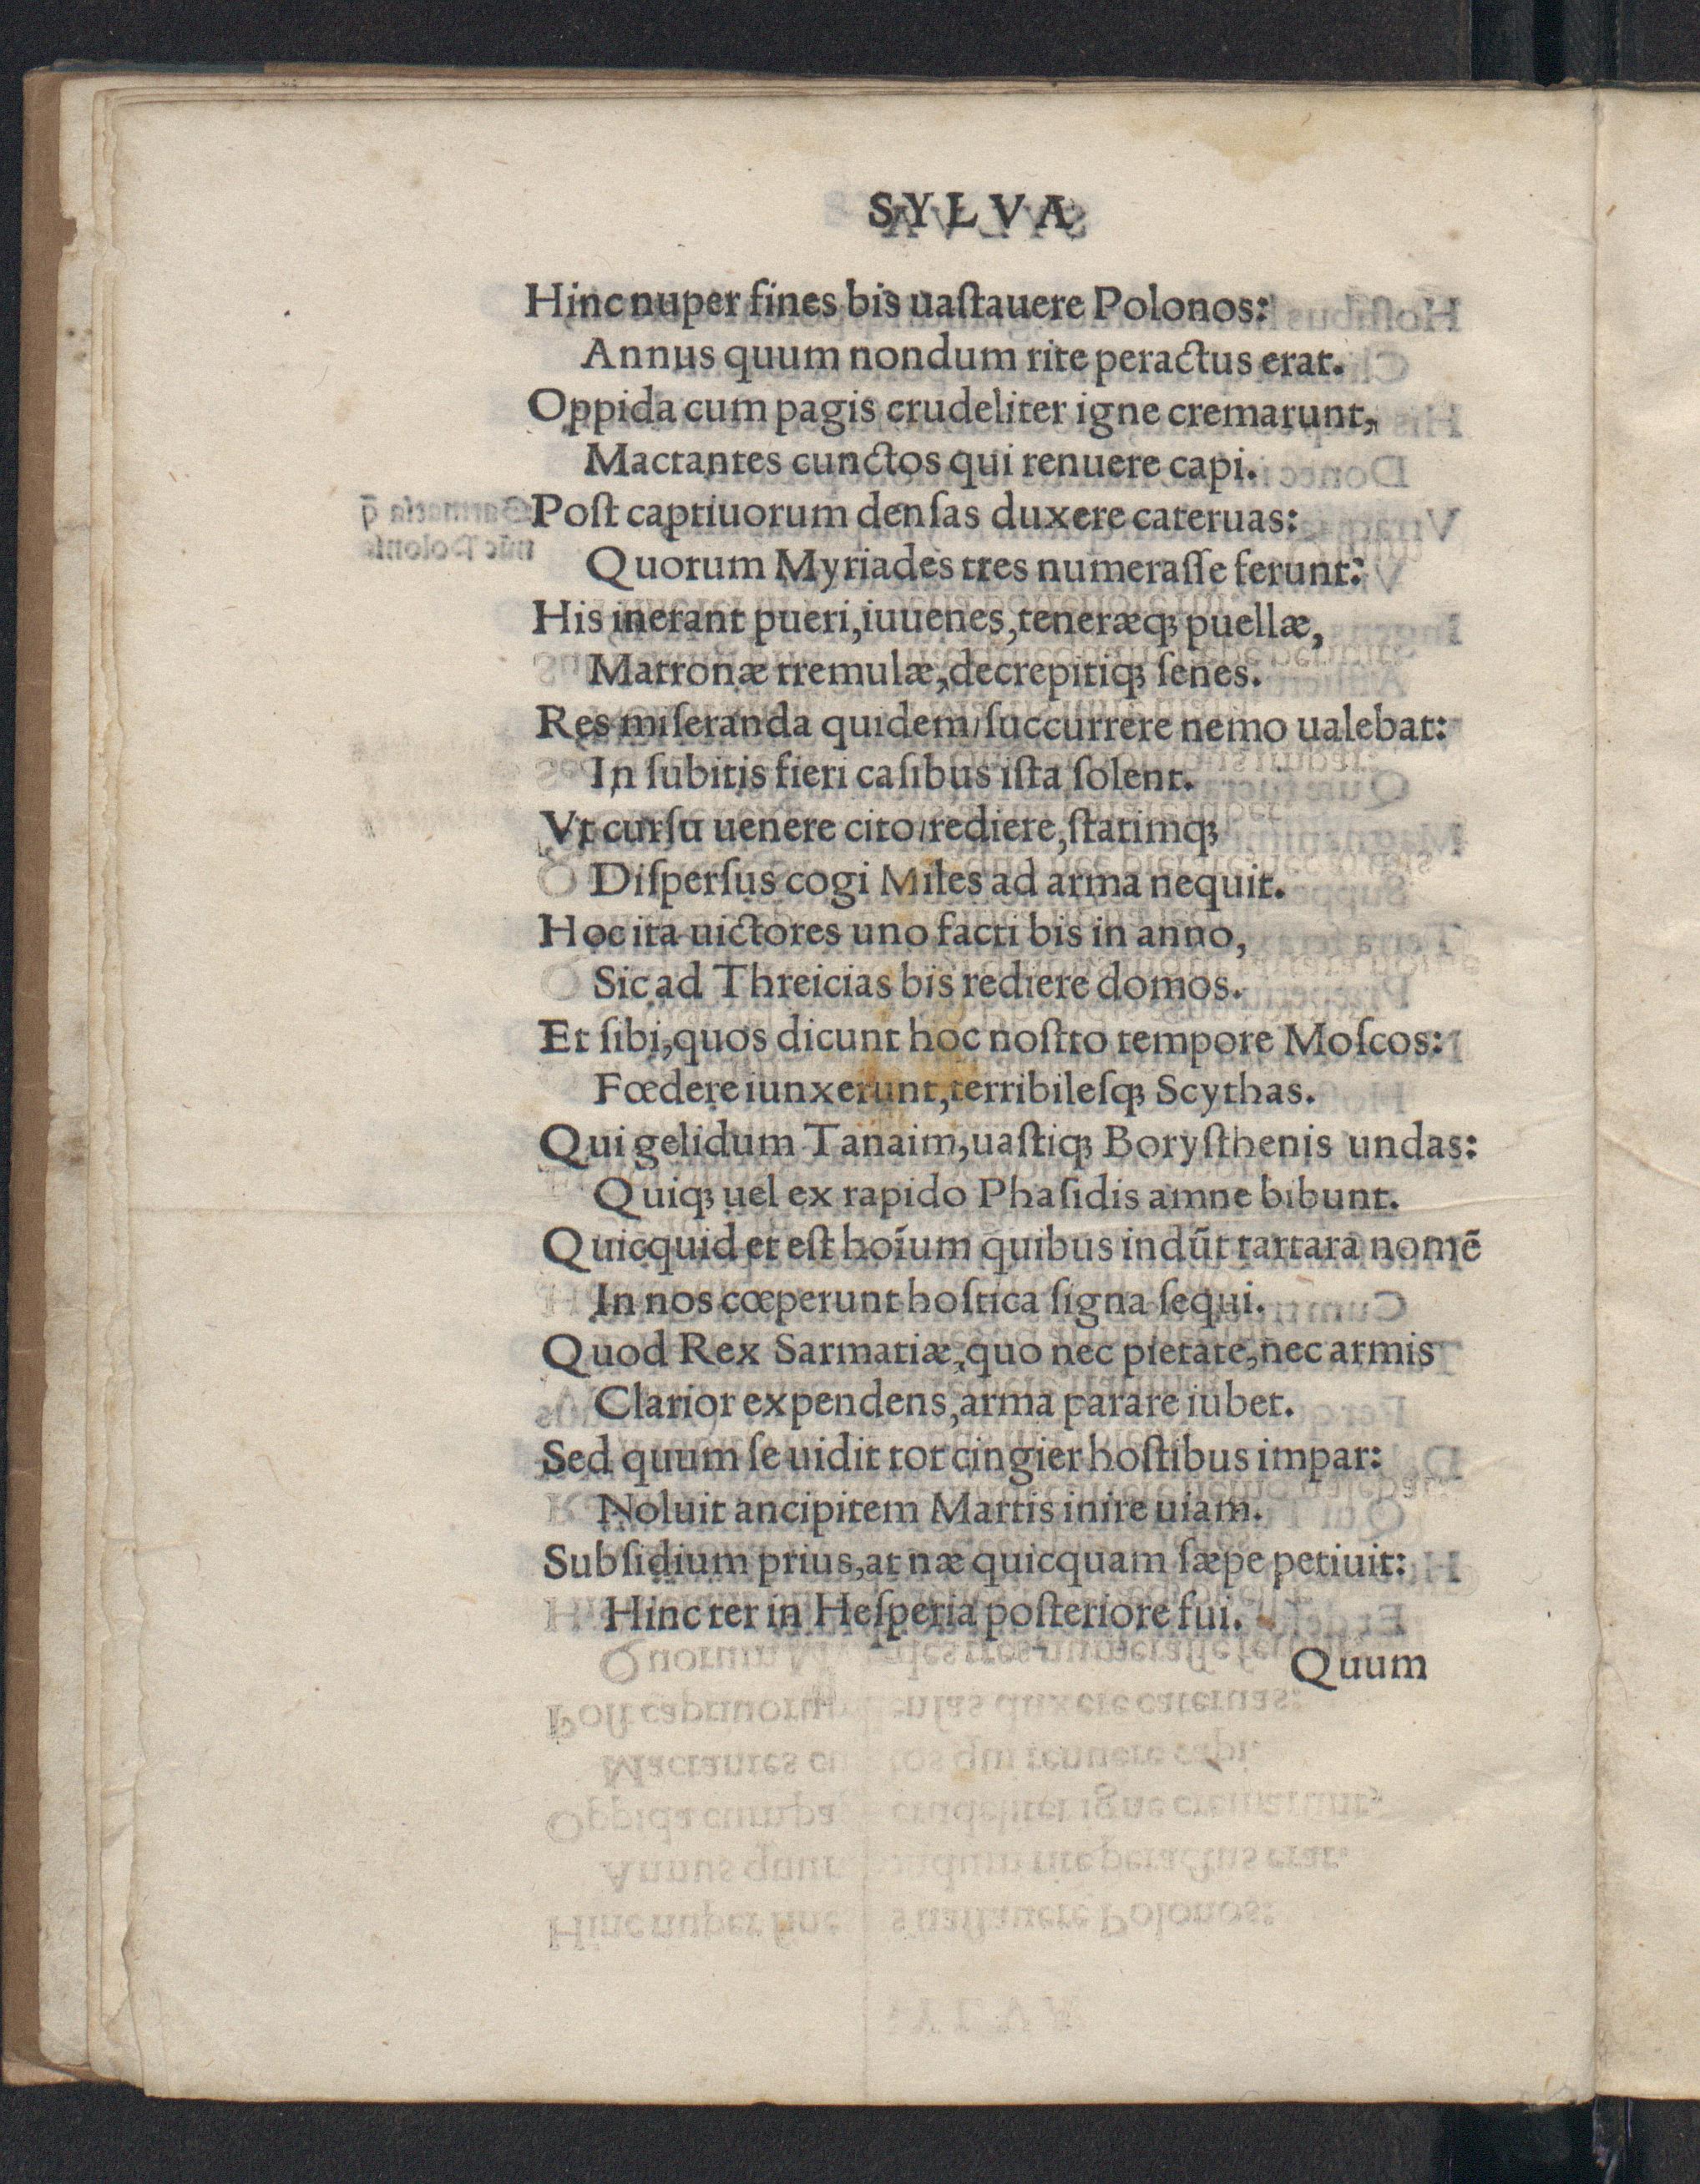 SYLVA
Hinc nuper fines bis uaſtauere Polonos:
Annus quum nondum rite peractus erat.
Oppida cum pagis crudeliter igne cremarunt,
Mactantes cunctos qui renuere capi.
Poſt captiuorum denſas duxere cateruas:
Quorum Myriades tres numeraſſe ferunt:
His inerant pueri, iuuenes, teneræqꝫ puellæ,
Matronæ tremulæ, decrepitiqꝫ ſenes.
Res miſeranda quidem/ſuccurrere nemo ualebat:
In ſubitis fieri caſibus iſta ſolent.
Vt curſu uenere cito/rediere, ſtatimqꝫ
Diſperſus cogi Miles ad arma nequit.
Hoc ita uictores uno facti bis in anno,
Sic ad Threicias bis rediere domos.
Et ſibi, quos dicunt hoc noſtto tempore Moſcos:
Fœdere iunxerunt, terribileſqꝫ Scythas.
Qui gelidum Tanaim, uaſtiqꝫ Boryſthenis undas:
Quiqꝫ uel ex rapido Phaſidis amne bibunt.
Quicquid et eſt hoīum quibus indūt tartara nomē
In nos cœperunt hoſtica ſigna ſequi.
Quod Rex Sarmatiæ, quo nec pietate, nec armis
Clarior expendens, arma parare iubet.
Sed quum ſe uidit tot cingier hoſtibus impar:
Noluit ancipitem Martis inire uiam.
Subſidium prius, at næ quicquam ſæpe petiuit:
Hinc ter in Heſperia poſteriore fui.
Quum